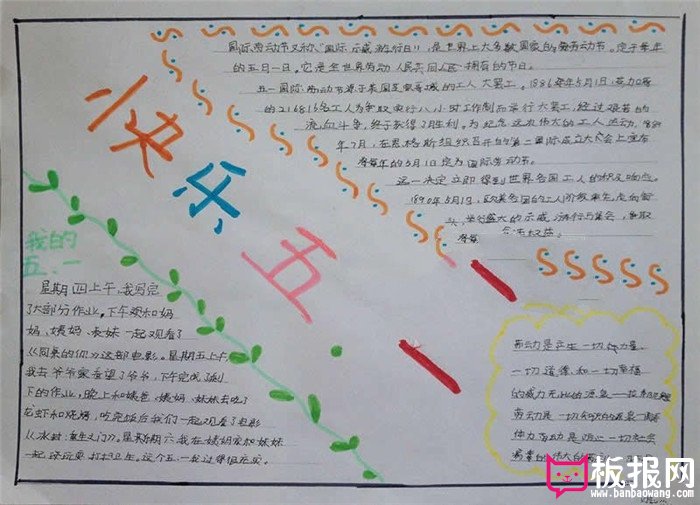 快乐五一
国际劳动节又称"国际示威游行日",是世界上大多数国家的劳动节。定于每年
的五月一日。它是全世界劳动人民共同拥有的节日。
五一国际劳动节源于美国芝加哥城的工人大罢工。1886年5月1日,芝加哥
的216816名工人为争取实行八小时工作制而举行大罢工,经过艰苦的
流血斗争,终于获得了胜利。为纪念这次伟大的工人运动,1889
年7月,在恩格斯组织召开的第二国际成立大会上宣布
将每年的5月1日定为国际劳动节。
这一决定立即得到世界各国工人的积极响应。
1890年5月1日,欧美各国的工人阶级率先走向街
头,举行盛大的示威游行与集会,争取
合法权益。
我的
五·一
星期四上午,我写完
了大部分作业,下午我和妈
妈、姨妈、表妹一起观看了
《同来的你》这部电影。星期五上午
我去爷爷家看望了爷爷,下午完成了剩
下的作业,晚上和姨爸、姨妈、妹妹去吃了
龙虾和烧烤,吃完饭后我们一起观看了电影
《冰封:重生之门》。星期六我在姨姨家和妹妹
一起
打扫卫生。这个五一我过得很充实。
劳动是产生一切力量、
一切道德和一切幸福
的威力无比的源泉——拉·乔乃尼奥里
劳动是一切知识的源泉
体力劳动是防止一切社会
病毒的伟大的
板报网
www.banbaowang.com